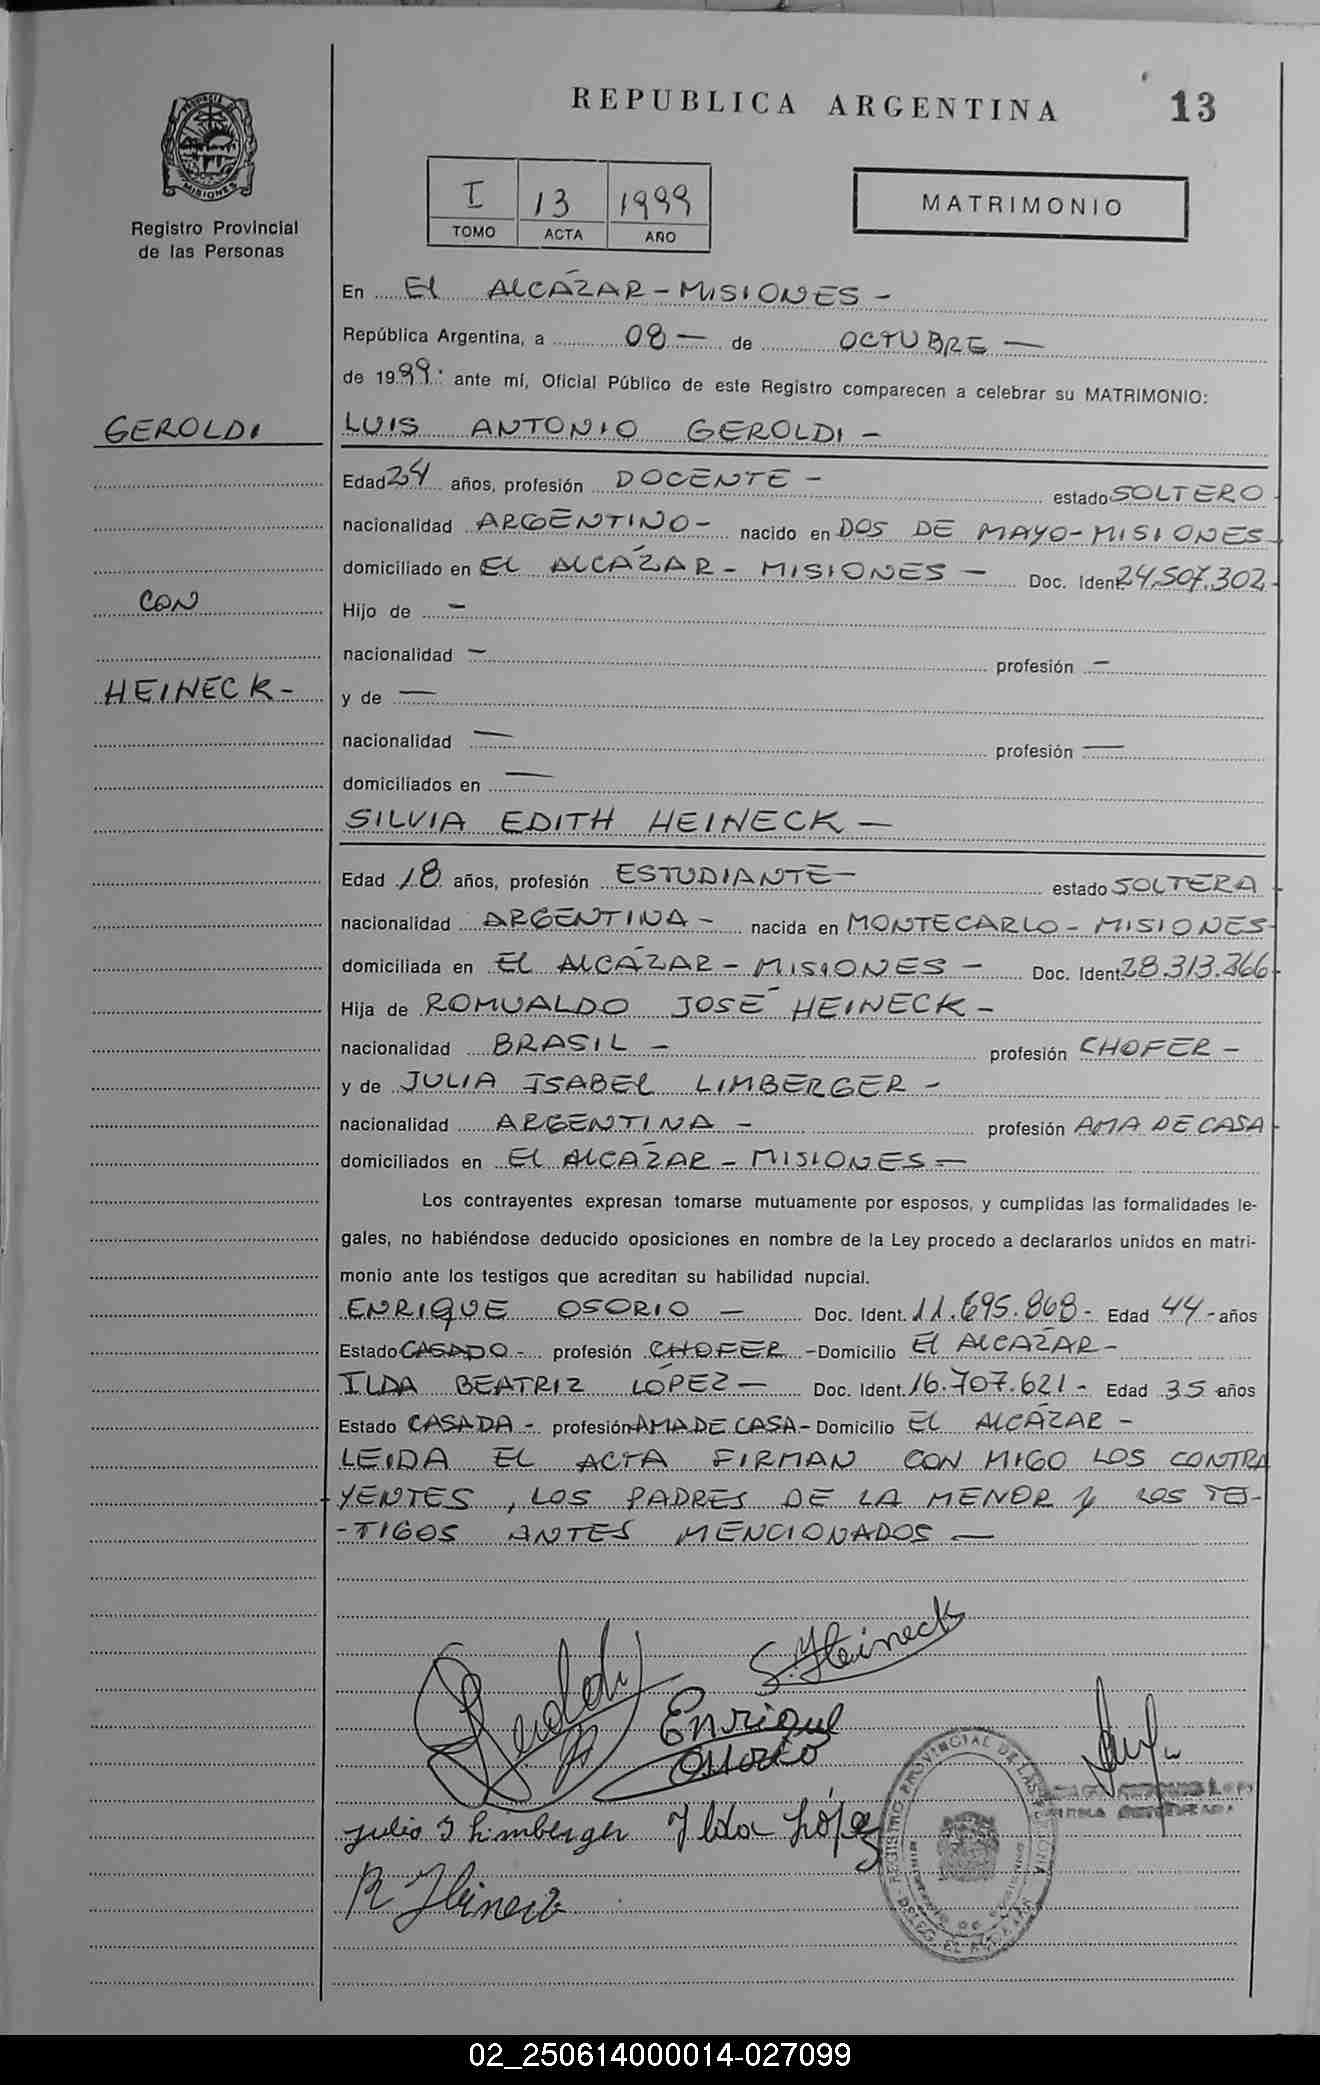 REPUBLICA ARGENTINA 13
PROVINCIA DE MISIONES
Registro Provincial
de las Personas
I 13 1999
TOMO ACTA AÑO
MATRIMONIO
En El ALCÁZAR - MISIONES -
República Argentina, a 08 — de OCTUBRE —
de 1999. ante mí, Oficial Público de este Registro comparecen a celebrar su MATRIMONIO:
GEROLDI
LUIS ANTONIO GEROLDI -
Edad 24 años, profesión DOCENTE - estado SOLTERO
nacionalidad ARGENTINO - nacido en DOS DE MAYO - MISIONES
domiciliado en EL ALCÁZAR - MISIONES - Doc. Ident. 24.507.302
CON
Hijo de -
nacionalidad - profesión -
HEINECK -
y de —
nacionalidad — profesión —
domiciliados en —
SILVIA EDITH HEINECK —
Edad 18 años, profesión ESTUDIANTE - estado SOLTERA
nacionalidad ARGENTINA - nacida en MONTECARLO - MISIONES
domiciliada en EL ALCÁZAR - MISIONES - Doc. Ident. 28.313.
Hija de ROMUALDO JOSÉ HEINECK -
nacionalidad BRASIL - profesión CHOFER -
y de JULIA ISABEL LIMBERGER -
nacionalidad ARGENTINA - profesión AMA DE CASA
domiciliados en El ALCÁZAR - MISIONES —
Los contrayentes expresan tomarse mutuamente por esposos, y cumplidas las formalidades le-
gales, no habiéndose deducido oposiciones en nombre de la Ley procedo a declararlos unidos en matri-
monio ante los testigos que acreditan su habilidad nupcial.
ENRIQUE OSORIO — Doc. Ident. 11.695.868 - Edad 44 - años
Estado CASADO - profesión CHOFER - Domicilio El ALCÁZAR -
ILDA BEATRIZ LÓPEZ — Doc. Ident. 16.707.621 - Edad 35 años
Estado CASADA - profesión AMA DE CASA - Domicilio EL ALCÁZAR -
LEIDA EL ACTA FIRMAN CON MIGO LOS CONTRA
YENTES, LOS PADRES DE LA MENOR y LOS TES-
-TIGOS ANTES MENCIONADOS —
S. Heineck
Geroldi
Enrique
Osorio
Julia I Limberger Ilda López
R Heineck
REGISTRO PROVINCIAL DE LAS PERSONAS
02_250614000014-027099